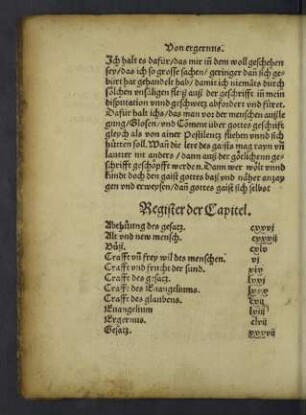 Von ergernus.
Ich halt es dafür/das mir in dem woll geschehen
sey/das ich so grosse sachen/geringer dan sich ge⸗
bürt hat gehandelt hab/damit ich niemãts durch
solchen vnsäligen fleyß auß der geschrifft in mein
disputation vnnd geschwetz abfordert vnd füret.
Dafür halt ichs/das man vor der menschen außle
gung/Glosen/vnd Cõment über gottes geschrifft
gleych als von ainer Pestilentz fliehen vnnd sich
hütten soll. Wañ die lere des gaists mag rayn vñ
lautter nit anders/dann auß der götlichenn ge⸗
schrifft geschöpfft werden. Dann wer wolt vnnd
kindt doch den gaist gottes baß vnd näher anzay
gen vnd erweysen/dañ gottes gaist sich selbst
Register der Capitel.
des gesatz.
Alt vnd new mensch.
Büß.
Crafft vñ frey wil des menschen. vj
Crafft vnd frucht der sund. xiv
Crafft des gesatz.
Crafft des Euangeliums.
Crafft des glaubens.
Euangelium
Ergernus.
Gesatz.